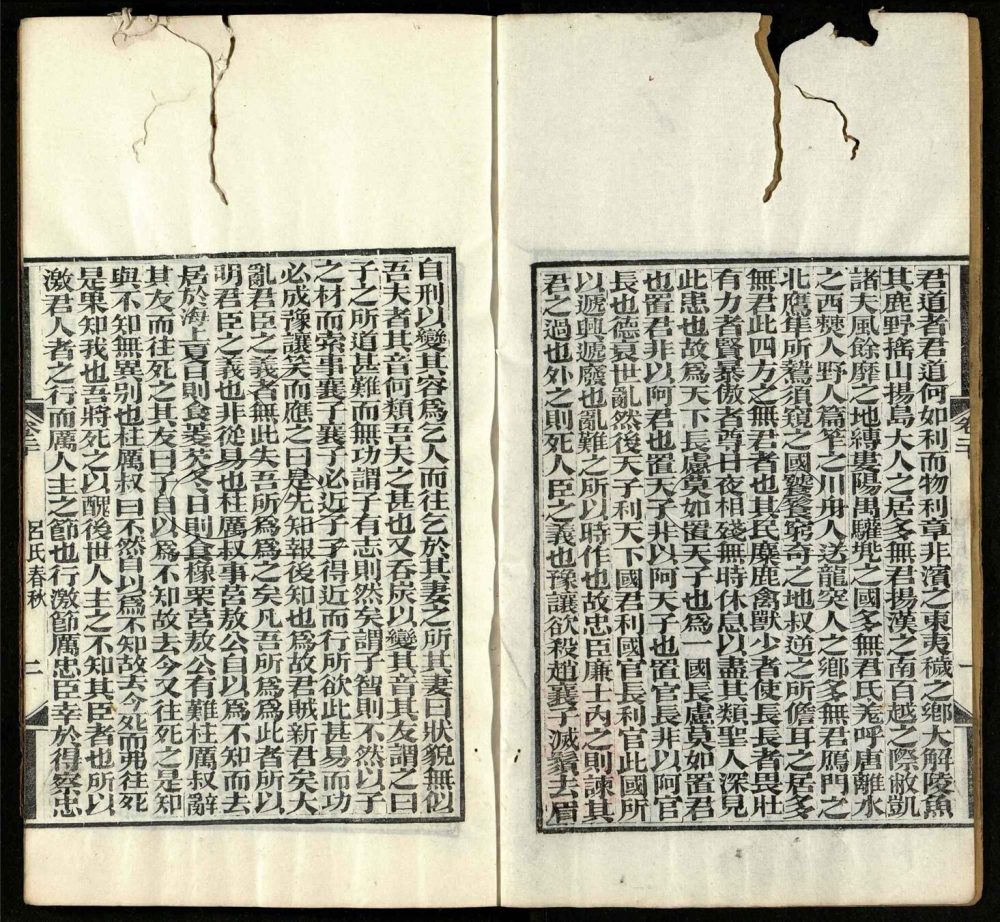 君道者君道何如利而物利章非濱之東夷穢之鄉大解陵魚
其鹿野搖山揚島大人之居多無君揚漢之南百越之際敝凱
諸夫風餘靡之地縳婁陽禺驩兠之國多無君氐羌呼唐離水
之西僰人野人篇笮之川舟人送龍突人之鄉多無君鴈門之
北鷹隼所鷙須窺之國饕餮窮奇之地叔逆之所儋耳之居多
無君此四方之無君者也其民麋鹿禽獸少者使長長者畏壯
有力者賢暴傲者尊日夜相殘無時休息以盡其類聖人深見
此患也故爲天下長慮莫如置天子也爲一國長慮莫如置君
也置君非以阿君也置天子非以阿天子也置官長非以阿官
長也德衰世亂然後天子利天下國君利國官長利官此國所
以遞興遞廢也亂難之所以時作也故忠臣廉士內之則諫其
君之過也外之則死人臣之義也豫讓欲殺趙襄子滅鬚去眉
卷二十
一
自刑以變其容爲乞人而往乞於其妻之所其妻曰狀貌無似
吾夫者其音何類吾夫之甚也又吞炭以變其音其友謂之曰
子之所道甚難而無功謂子有志則然矣謂子智則不然以子
之材而索事襄子襄子必近子子得近而行所欲此甚易而功
必成豫讓笑而應之曰是先知報後知也爲故君賊新君矣大
亂君臣之義者無此失吾所爲爲之矣凡吾所爲爲此者所以
明君臣之義也非從易也柱厲叔事莒敖公自以爲不知而去
居於海上夏日則食菱芡冬日則食橡栗莒敖公有難柱厲叔辭
其友而往死之其友曰子自以爲不知故去今又往死之是知
與不知無異別也柱厲叔曰不然自以爲不知故去今死而弗往死
是果知我也吾將死之以醜後世人主之不知其臣者也所以
激君人者之行而厲人主之節也行激節厲忠臣幸於得察忠
呂氏春秋
二